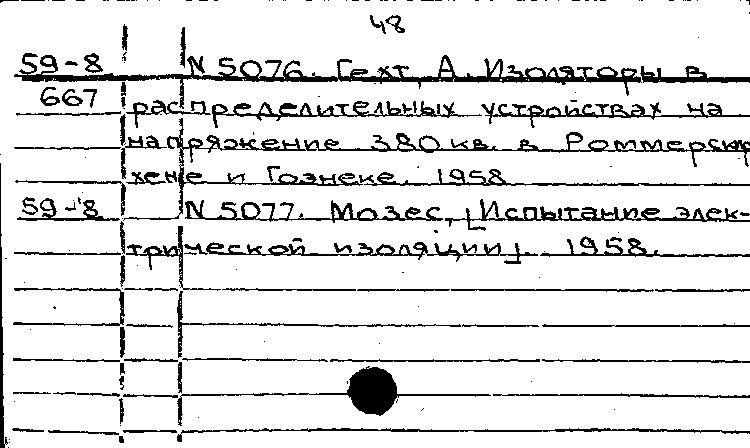 48
59-8 N 5076. Гехт, А. Изоляторы в
667 распределительных устройствах на
напряжение 380 кв. в Роммерскир
хене и Гознеке. 1958
59-8 N 5077. Мозес, [Испытание элек-
трической изоляции]. 1958.